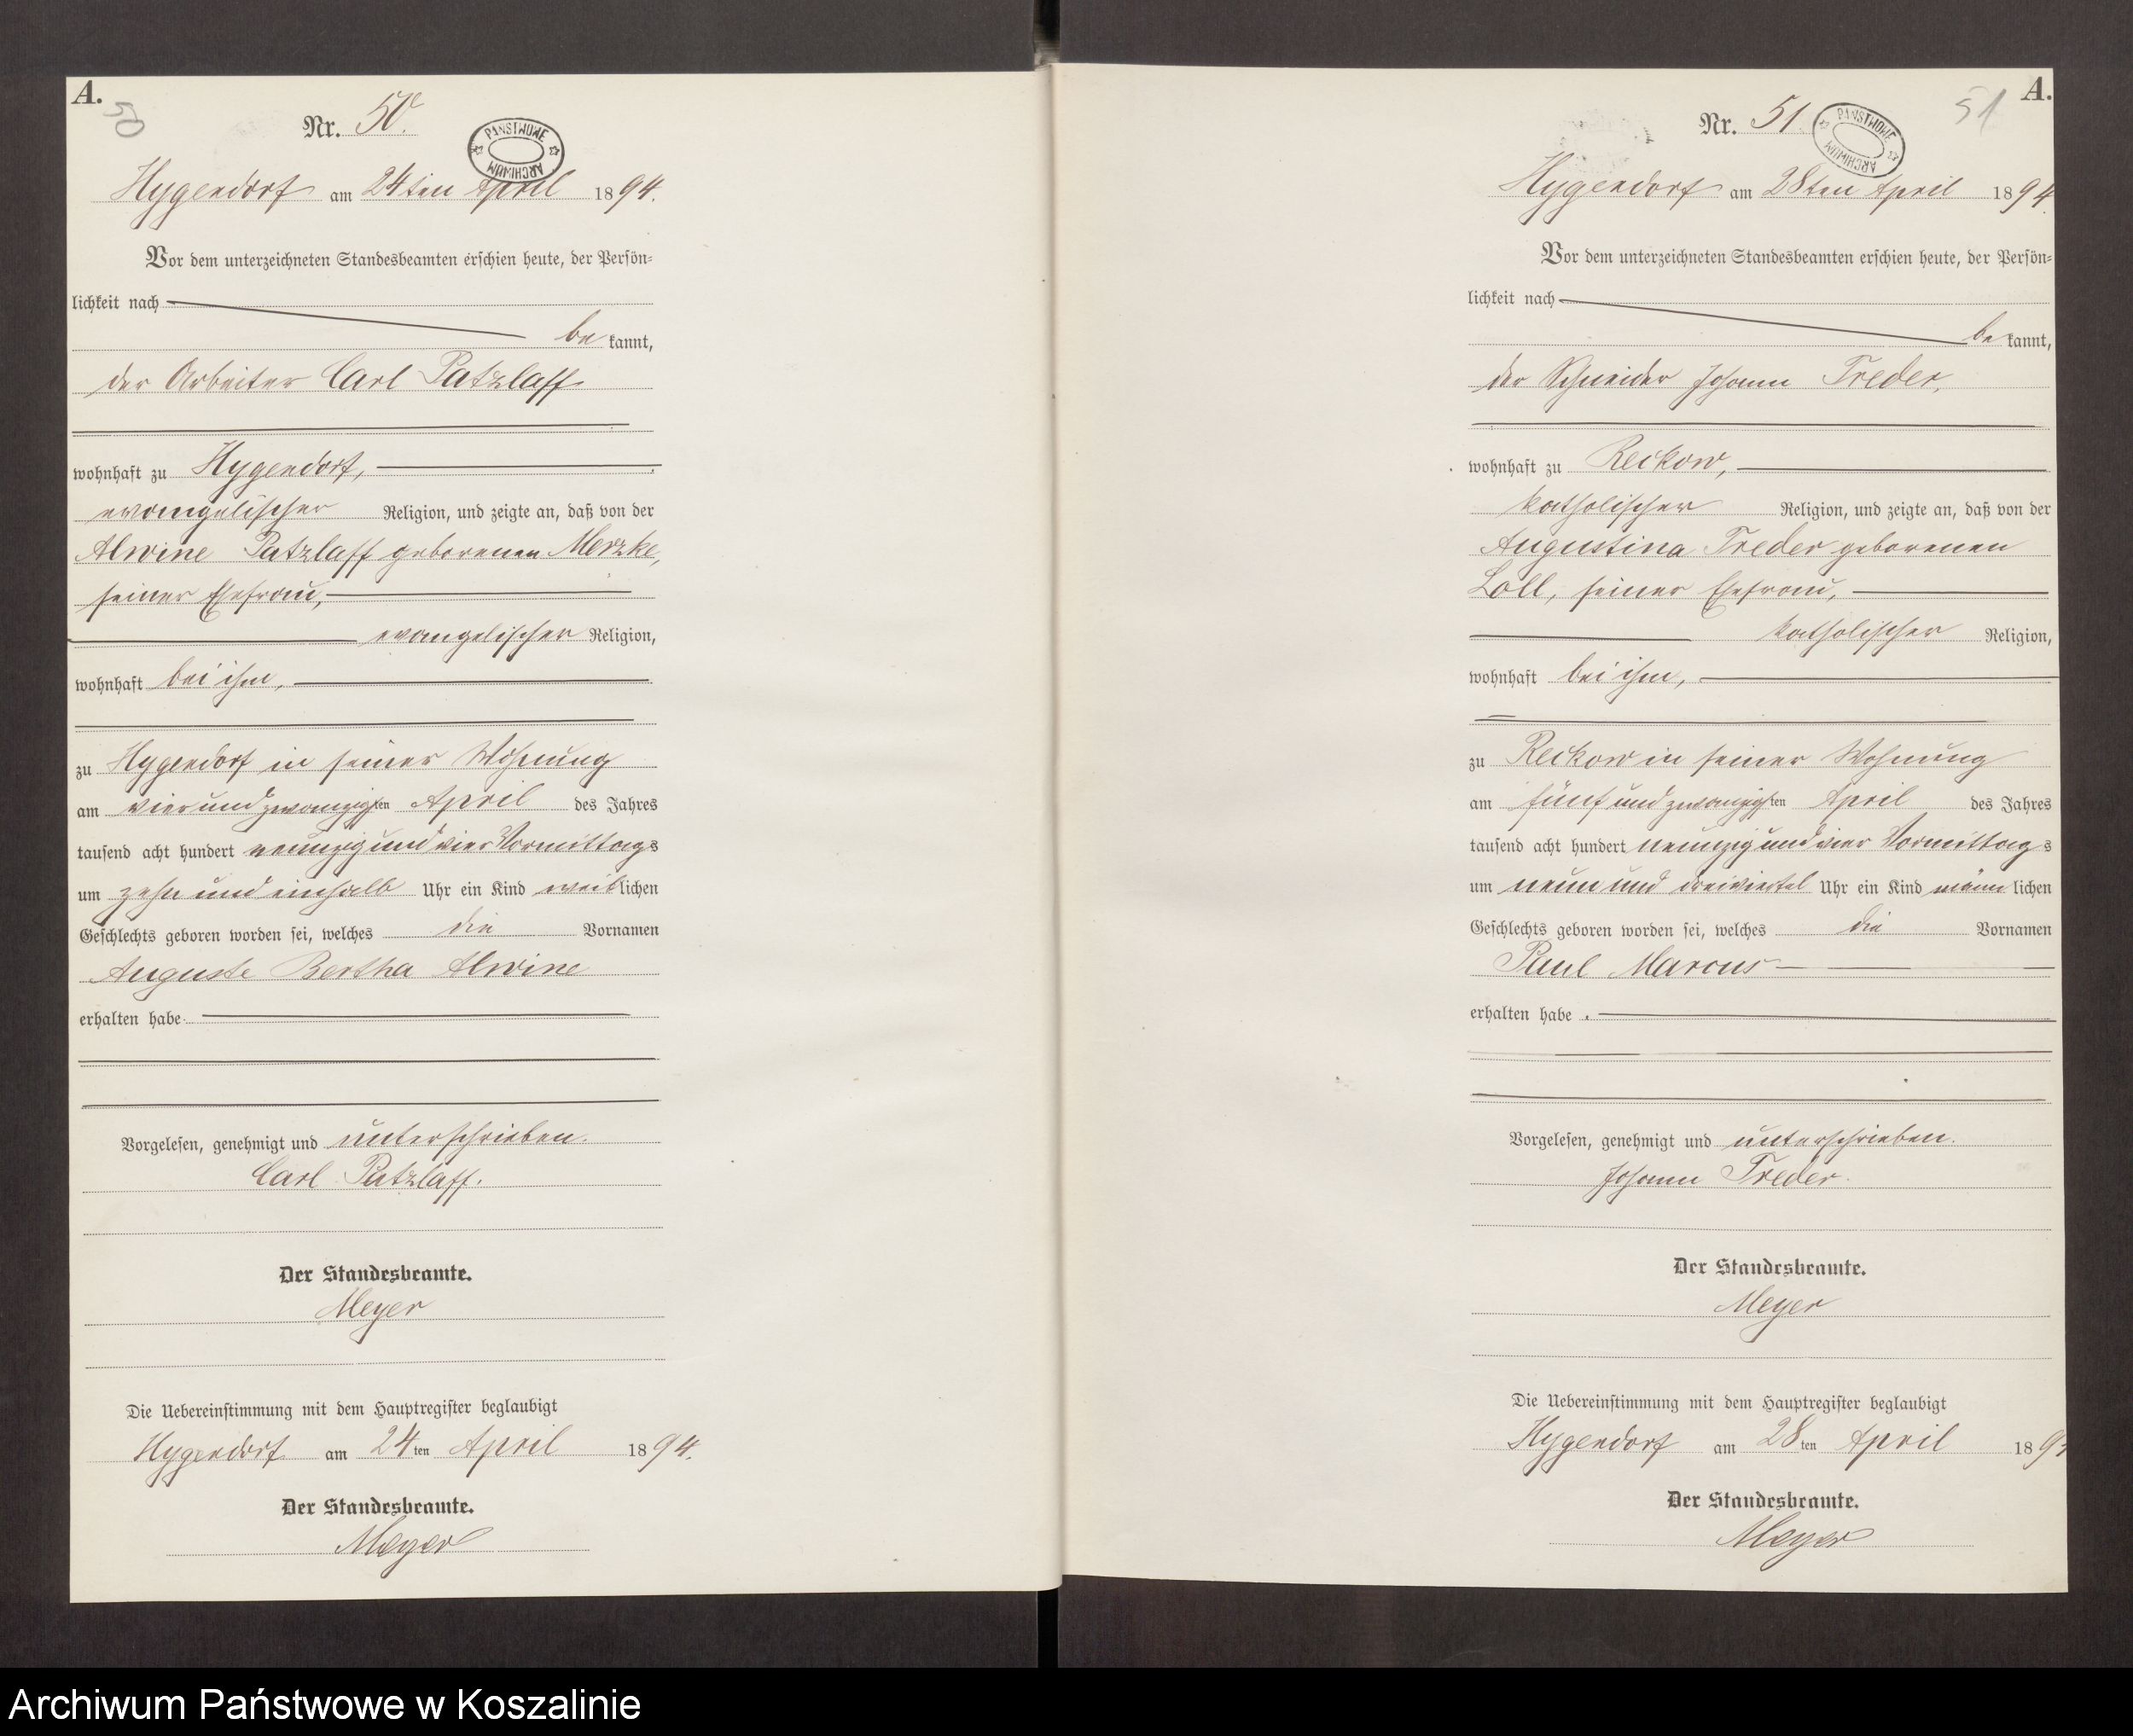 A.
50
Nr. 50.
PAŃSTWOWE ARCHIWUM
Hygendorf am 24ten April 1894.
Vor dem unterzeichneten Standesbeamten erschien heute, der Persön-
lichkeit nach
be kannt,
der Arbeiter Carl Patzlaff
wohnhaft zu Hygendorf,
evangelischer Religion, und zeigte an, daß von der
Alwine Patzlaff geborenen Merzke,
seiner Ehefrau,
evangelischer Religion,
wohnhaft bei ihm,
zu Hygendorf in seiner Wohnung
am vierundzwanzigsten April des Jahres
tausend acht hundert neunzig und vier Vormittags
um zehn und einhalb Uhr ein Kind weiblichen
Geschlechts geboren worden sei, welches die Vornamen
Auguste Bertha Alwine
erhalten habe
Vorgelesen, genehmigt und unterschrieben.
Carl Patzlaff.
Der Standesbeamte.
Meyer
Die Uebereinstimmung mit dem Hauptregister beglaubigt
Hygendorf am 24ten April 1894.
Der Standesbeamte.
Meyer
A.
51
Nr. 51.
PAŃSTWOWE ARCHIWUM
Hygendorf am 28ten April 1894.
Vor dem unterzeichneten Standesbeamten erschien heute, der Persön-
lichkeit nach
be kannt,
der Schneider Johann Treder,
wohnhaft zu Reckow,
katholischer Religion, und zeigte an, daß von der
Augustina Treder geborenen
Loll, seiner Ehefrau,
katholischer Religion,
wohnhaft bei ihm,
zu Reckow in seiner Wohnung
am fünf und zwanzigsten April des Jahres
tausend acht hundert neunzig und vier Vormittags
um neun und dreiviertel Uhr ein Kind männlichen
Geschlechts geboren worden sei, welches die Vornamen
Paul Marcus
erhalten habe.
Vorgelesen, genehmigt und unterschrieben.
Johann Treder.
Der Standesbeamte.
Meyer
Die Uebereinstimmung mit dem Hauptregister beglaubigt
Hygendorf am 28ten April 189
Der Standesbeamte.
Meyer
Archiwum Państwowe w Koszalinie